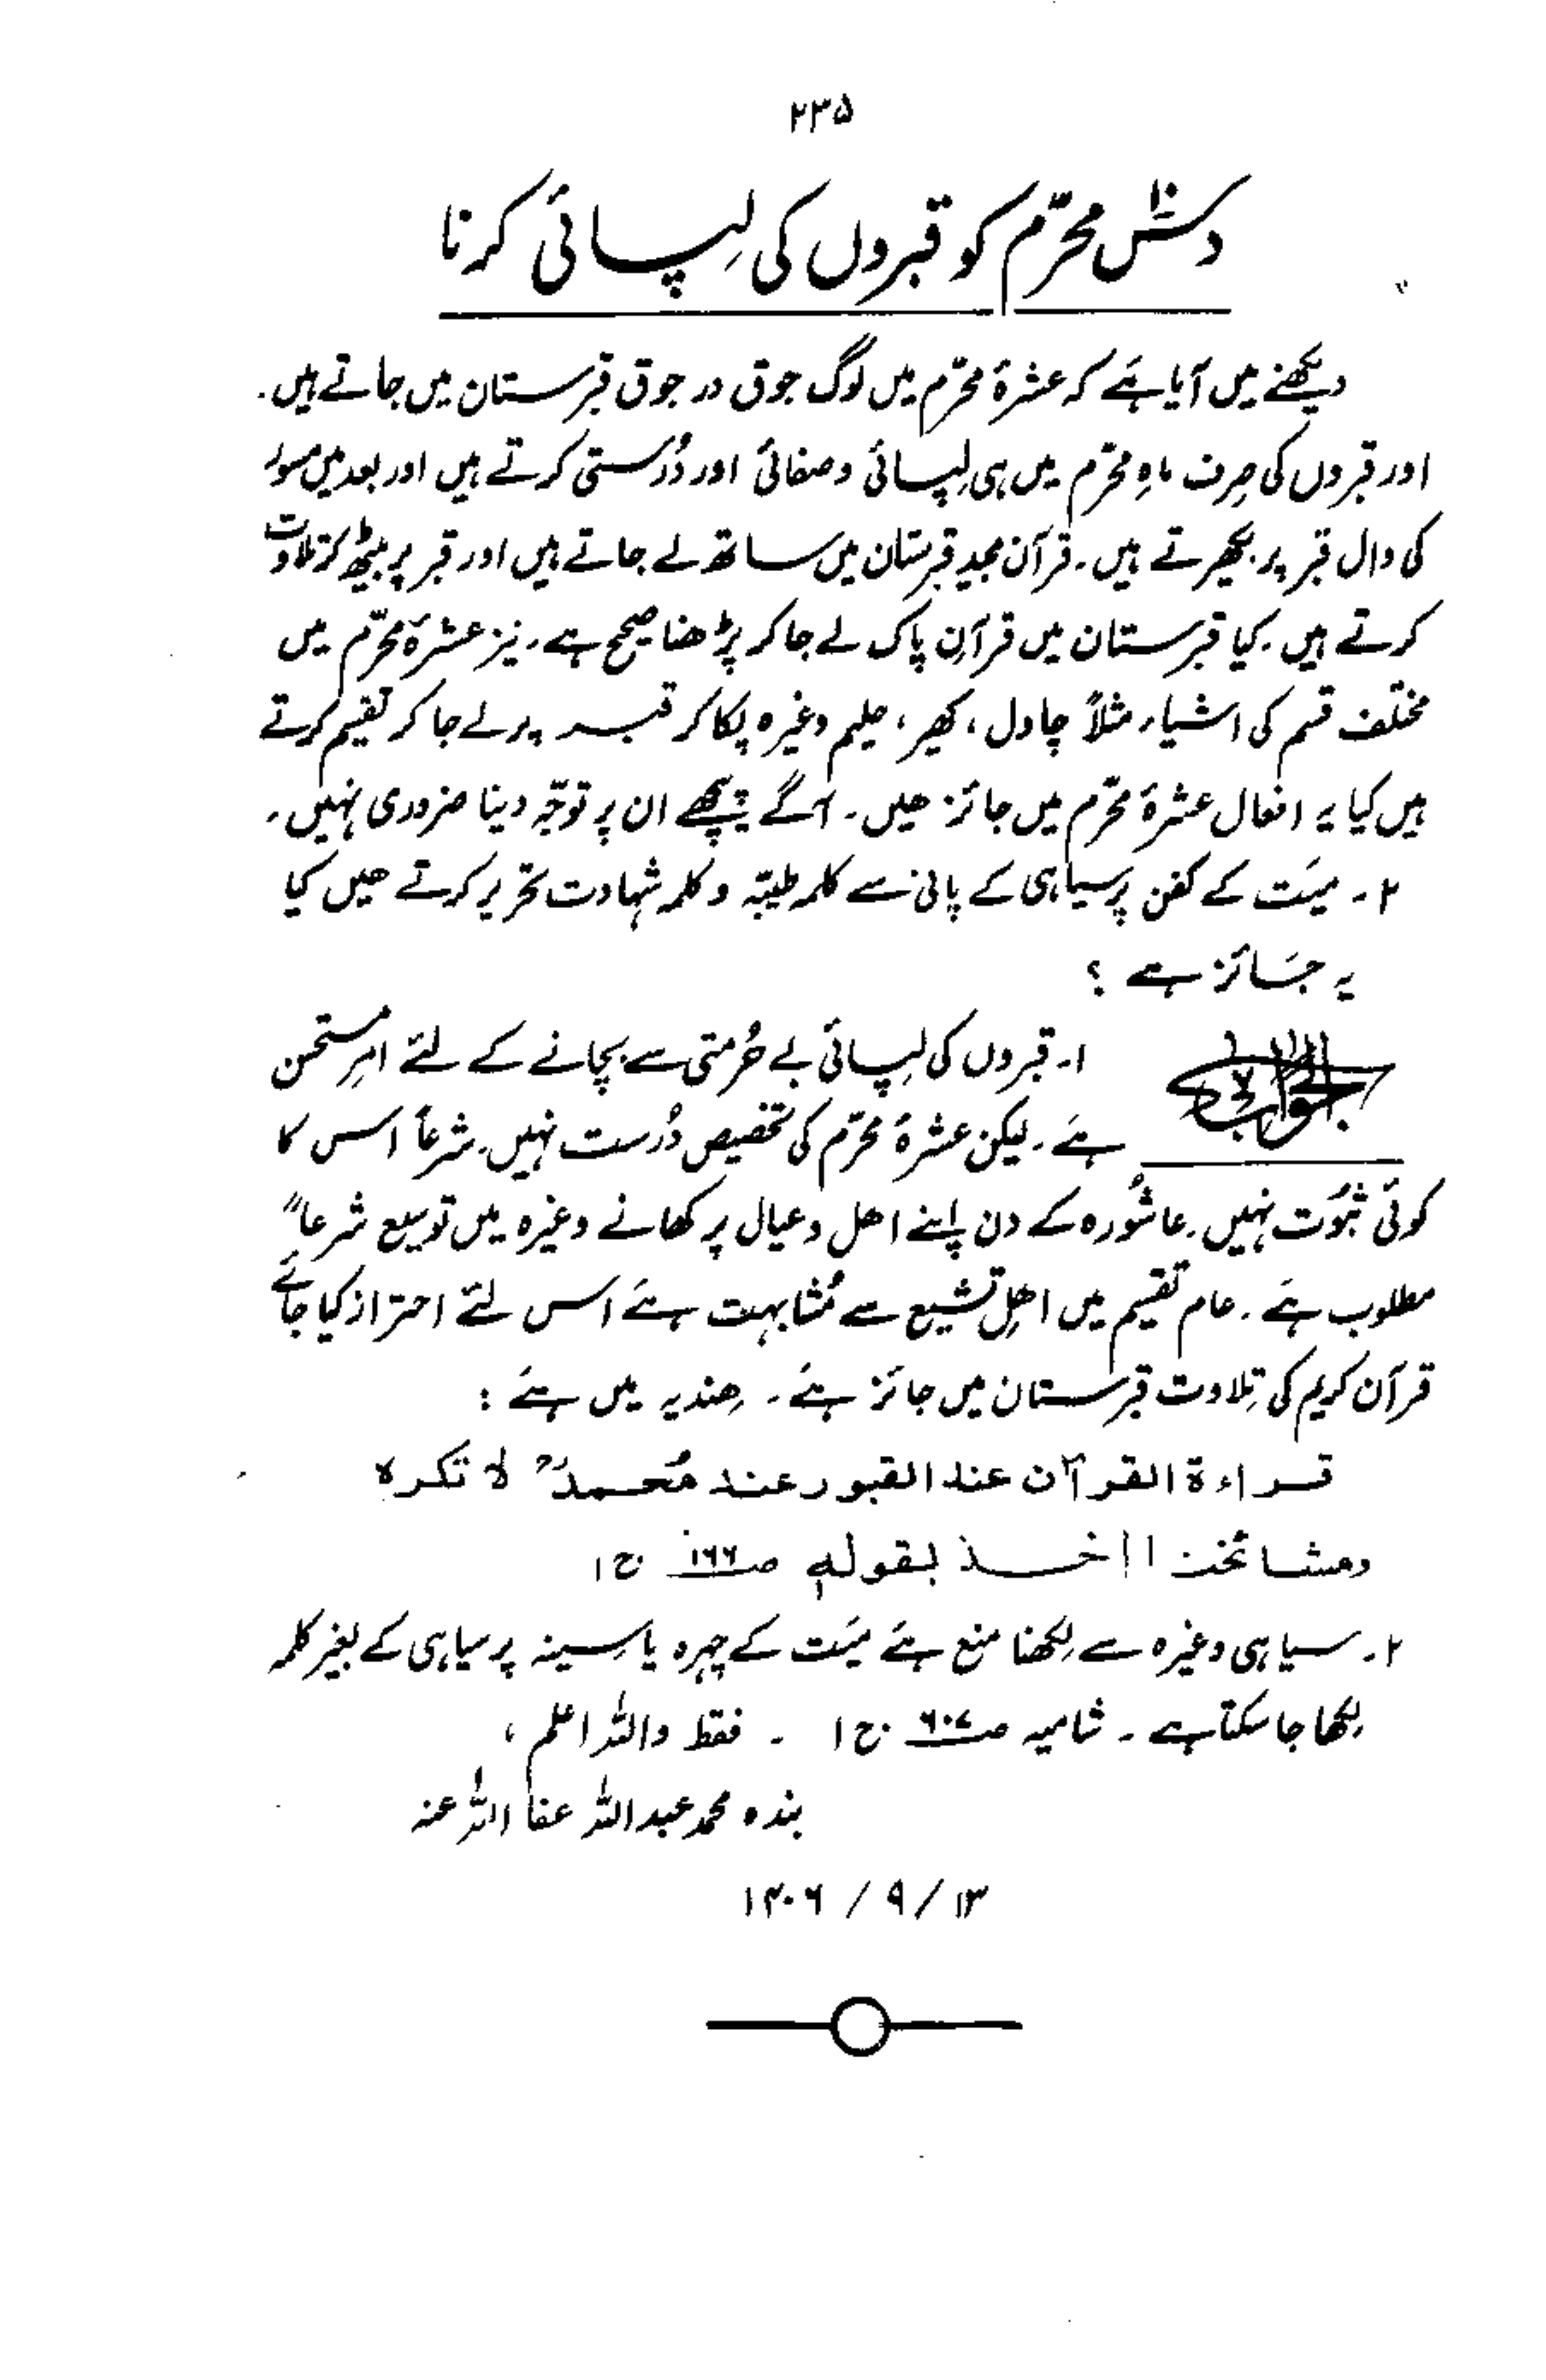 ۲۳۵
دسویں محرّم کو قبروں کی لِپائی کرنا
دیکھنے میں آیا ہے کہ عشرۂ محرّم میں لوگ جوق در جوق قبرستان میں جاتے ہیں۔
اور قبروں کی صِرف ماہِ محرّم میں ہی لِپائی و صفائی اور دُرُستی کرتے ہیں اور بعد میں مسور
کی دال قبر پر بکھیرتے ہیں۔ قرآن مجید قبرستان میں ساتھ لے جاتے ہیں اور قبر پر بیٹھ کر تلاوت
کرتے ہیں۔ کیا قبرستان میں قرآنِ پاک لے جا کر پڑھنا صحیح ہے۔ نیز عشرۂ محرّم میں
مختلف قسم کی اشیاء مثلاً چاول، کھیر، حلیم وغیرہ پکا کر قبر پر لے جا کر تقسیم کرتے
ہیں کیا یہ افعال عشرۂ محرّم میں جائز ھیں۔ آگے پیچھے ان پر توجّہ دینا ضروری نہیں۔
۲۔ میّت کے کفن پر سیاہی کے پانی سے کلمہ طیبّہ و کلمہ شہادت تحریر کرتے ھیں کیا
یہ جَائز ہے ؟
الجواب ۱۔ قبروں کی لِپائی بے حُرمتی سے بچانے کے لئے امرِ مستحسن
ہے۔ لیکن عشرۂ محرّم کی تخصیص دُرست نہیں۔ شرعاً اس کا
کوئی ثبُوت نہیں۔ عاشُورہ کے دن اپنے اھل و عیال پر کھانے وغیرہ میں توسیع شرعاً
مطلوب ہے۔ عام تقسیم میں اھلِ تشیع سے مُشابہت ہے اس لئے احتراز کیا جائے
قرآن کریم کی تِلاوت قبرستان میں جائز ہے۔ ھِندیہ میں ہے :
قراءة القرآن عند القبور عند مُحمدؒ لا تكره
ومشائخنا اخذ بقوله صـ۱۶۶ ج ۱
۲۔ سیاہی وغیرہ سے لِکھنا منع ہے میّت کے چہرہ یا سینہ پر سیاہی کے بغیر کلمہ
لِکھا جا سکتا ہے۔ شامیہ صـ۶۰۷ ج ۱ ۔ فقط واللہ اعلم،
بندہ محمد عبداللہ عفا اللہ عنہ
۱۳ / ۹ / ۱۴۰۶